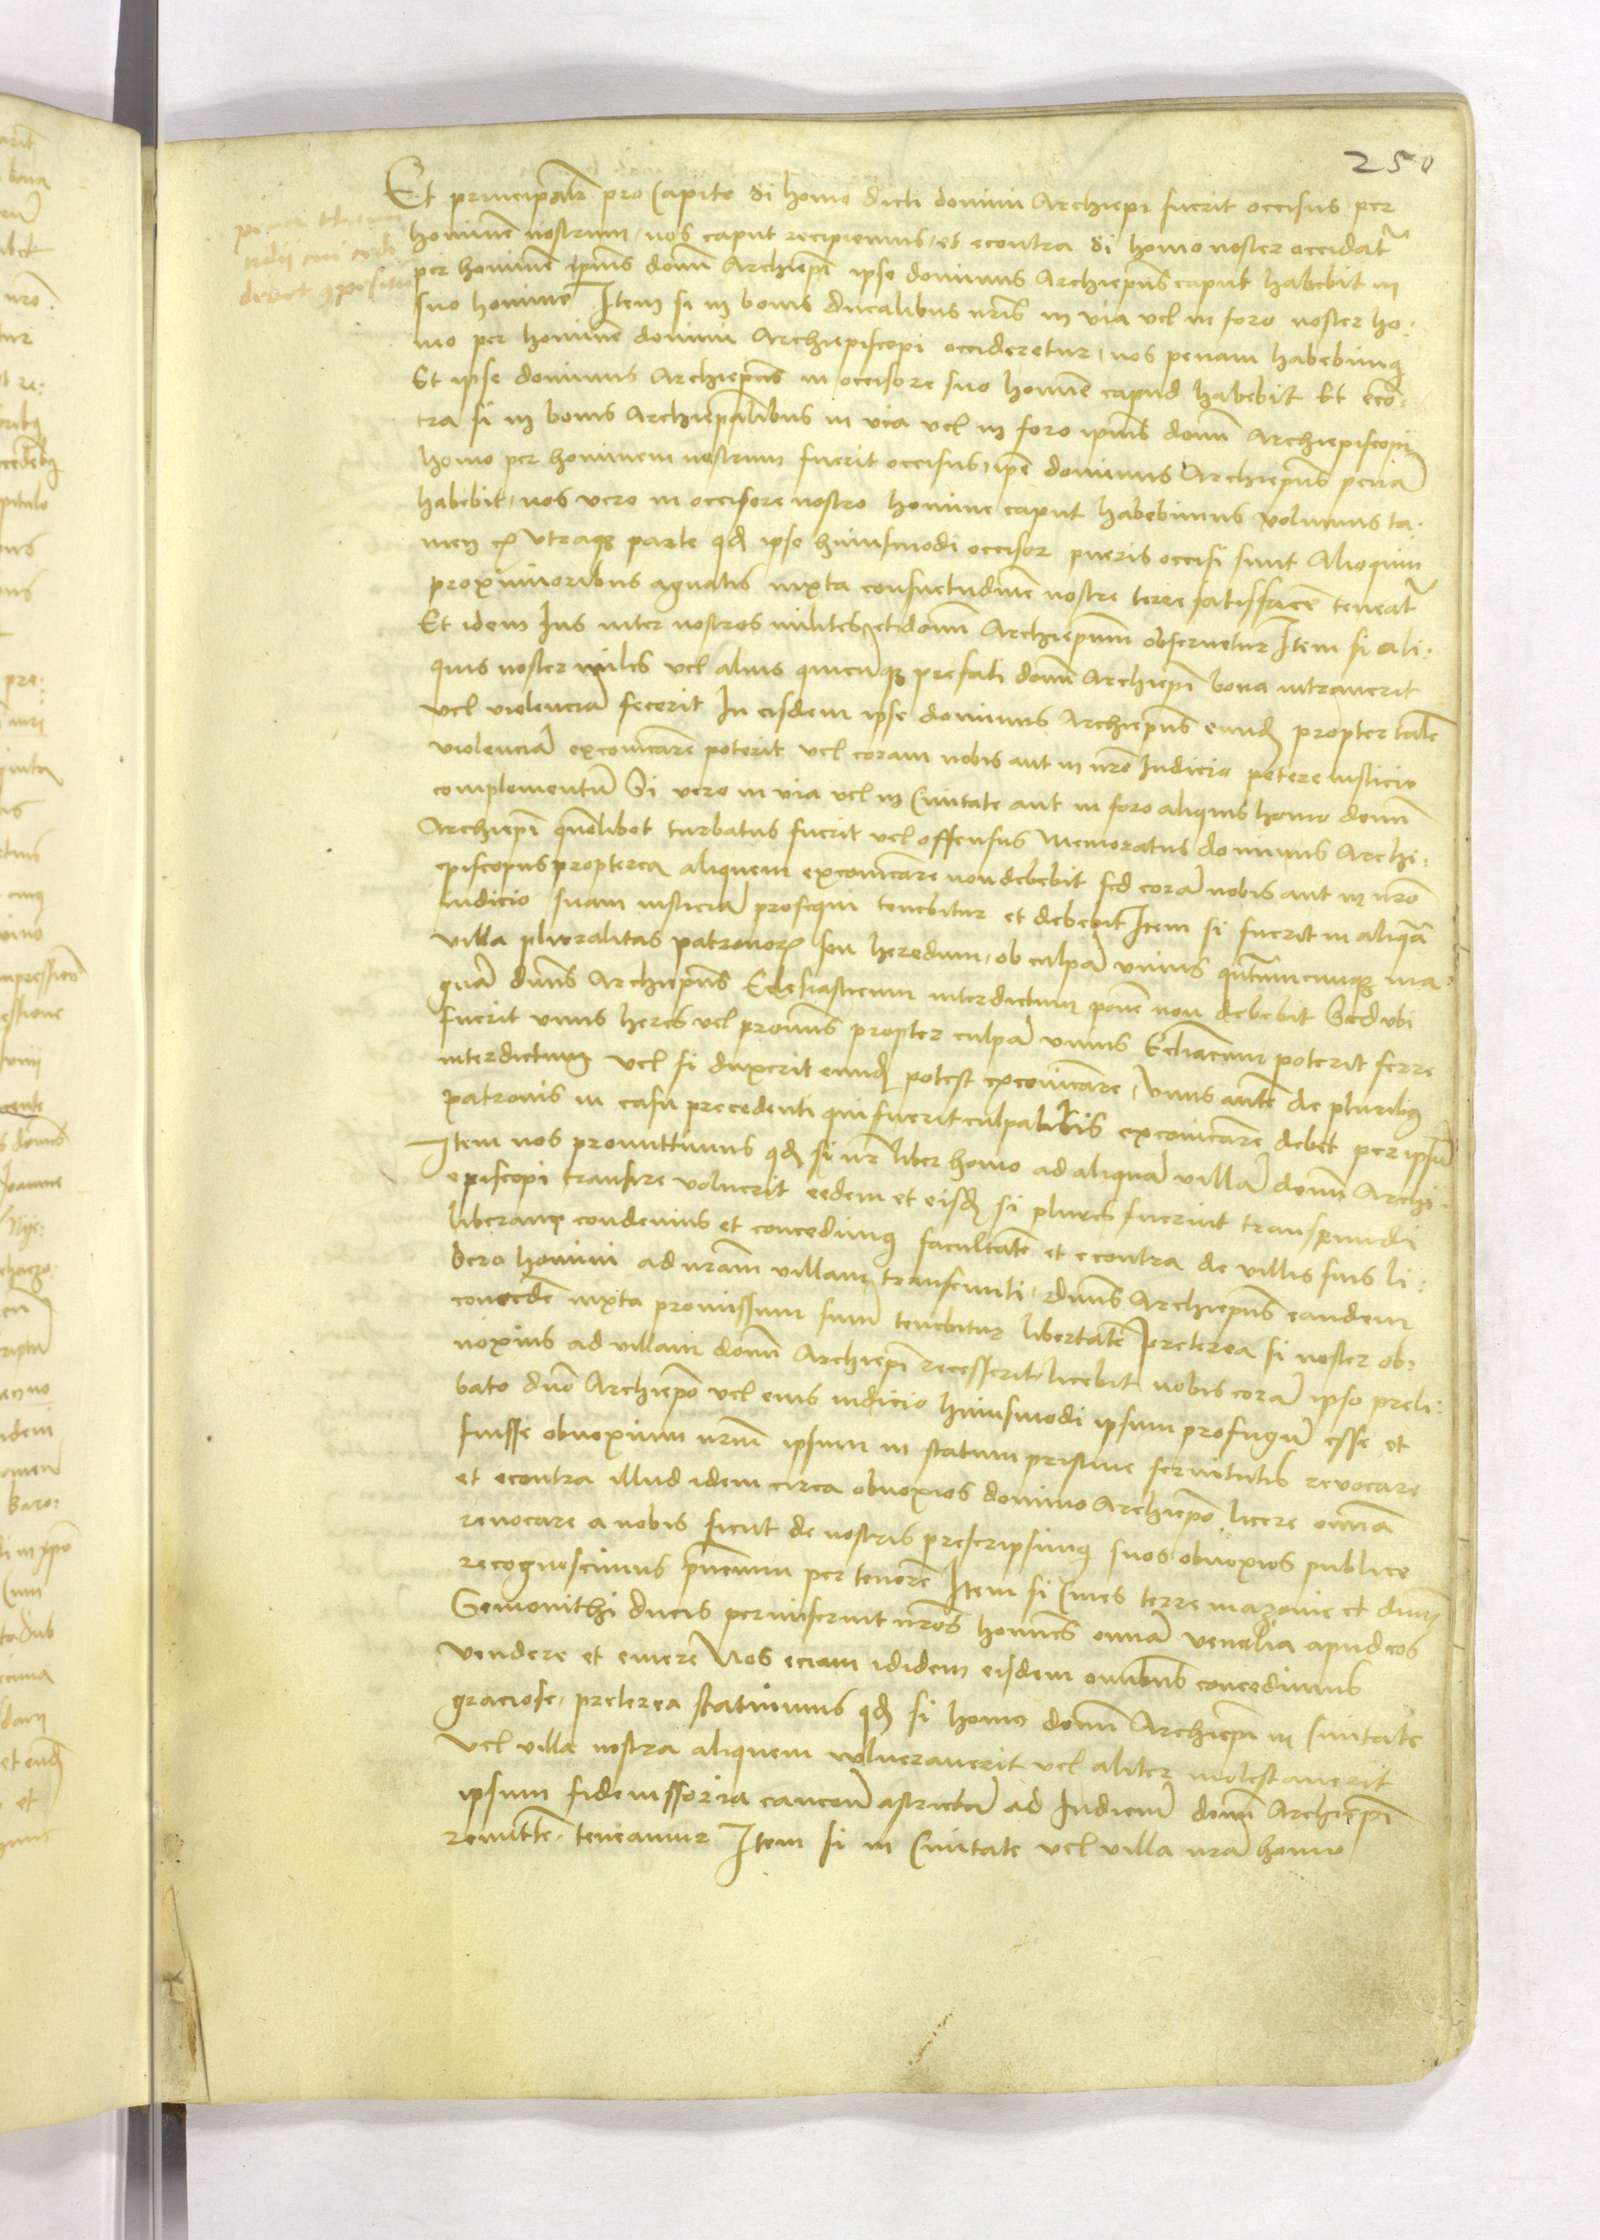 250
Et principalr̄ pro Capite Si homo dicti domini Archiepi fuerit occisus per
hominē nostrum, nos caput recipiemus, et econtra Si homo noster occidatr̄
per hominē ipīus domī Archiepī ipse dominus Archiepūs caput habebit in
suo homine Item si in bonis ducalibus nrīs in via vel in foro noster ho:
mo per hominē domini Archiepiscopi occideretur, nos penam habebimꝰ
Et ipse dominus Archiepūs in occisore suo homīe capud habebit Et ecō:
tra si in bonis Archiepālibus in via vel in foro ipīus domī Archiepiscopi
homo per hominem nostrum fuerit occisus, ipē dominus Archiepūs penā
habebit, nos vero in occisore nostro homine caput habebimus volumus ta:
men ex vtraqꝫ parte qđ ipse huiusmodi occisor pueris occisi sunt Alioquin
proximioribus agnatis iuxta consuetudinē nostre terre satisfacē teneatr̄
Et idem Ius inter nostros milites et domī Archiepūm obseruetur Item si ali:
quis noster miles vel alius quicūqꝫ prefati domī Archiepī bona intrauerit
vel violenciā fecerit In eisdem ipse dominus Archiepūs eundꝫ propter talē
violenciā excoīcare poterit vel coram nobis aut in nrō Iudicio petere iusticie
complementū Si vero in via vel in Ciuitate aut in foro aliquis homo domī
Archiepī quōlibet turbatus fuerit vel offensus Memoratus dominus Archi:
episcopus propterea aliquem excoīcare non debebit sed corā nobis aut in nrō
iudicio suam iusticiā prosequi tenebitur et debebit Item si fuerit in aliqā
villa pluralitas patronorꝫ seu heredum, ob culpā vnius qntūmcumqꝫ ma:
gnā dnūs Archiepūs Ecclesiasticum interdictum ponē non debebit Sed vbi
fuerit vnus heres vel pronūs propter culpā vnius Eciācum poterit ferre
interdictum vel si duxerit eundꝫ potest excoīcare, vnus autē de pluribꝰ
patronis in casu precedenti qui fuerit culpabilis excoīcare debet per ipsū
Item nos promittimus qđ si nr̄ liber homo ad aliquā villā domī Archi:
episcopi transire voluerit eedem et eisdꝫ si plures fuerint transeundi
liberam condemus et concedimꝰ facultatē et econtra de villis suis li:
bero homini ad nrām villam transeunti, dnūs Archiepūs eandem
concedē iuxta promissum suum tenebitur libertatē Preterea si noster ob:
noxius ad villam domī Archiepī recesserit, licebit nobis corā ipso preli:
bato dnō Archiepō vel eius iudicio huiusmodi ipsum profugū esse et
fuisse obnoxium nrūm ipsum in statum pristine seruitutis reuocare
et econtra illud idem circa obnoxios domino Archiepō licere omīa
reuocare a nobis sicut de nostris prescripsimꝰ suos obnoxios publice
recognoscimus prīntium per tenorē Item si Ciues terre mazouie et dnūm
Semouithi ducis permiserint nrōs homīes omīa venalia apud eos
vendere et emere Nos eciam ididem eisdem omībus concedimus
graciose, preterea statuimus qđ si homo domī Archiepī in Ciuitate
vel villa nostra aliquem vulnerauerit vel aliter molestauerit
ipsum fideiussoria caucoē astrictū ad Iudiciū domī Archiepī
remittē teneamur Item si in Ciuitate vel villa nrā homo